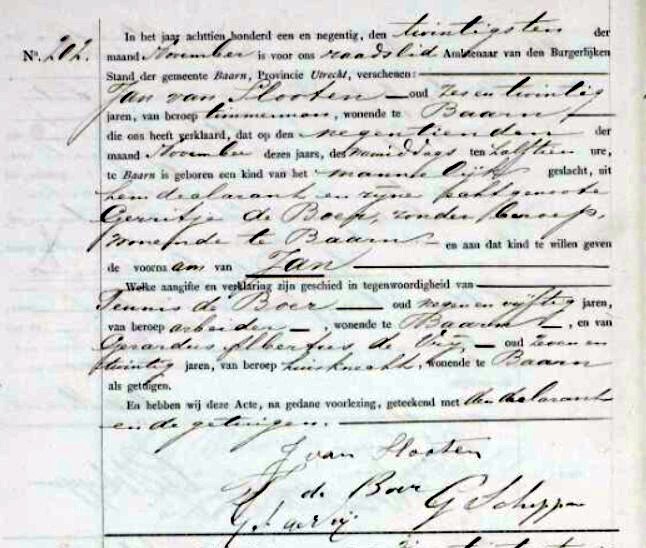 In het jaar achttien honderd een en negentig, den twintigsten der
No. 202. maand November is voor ons raadslid Ambtenaar van den Burgerlijken
Stand der gemeente Baarn, Provincie Utrecht, verschenen:
Jan van Slooten oud zes en twintig
jaren, van beroep timmerman, wonende te Baarn
die ons heeft verklaard, dat op den negentienden der
maand November dezes jaars, des namiddags ten half tien ure,
te Baarn is geboren een kind van het mannelijk geslacht, uit
hem declarant en zijne echtgenoote
Gerritje de Boer, zonder beroep,
wonende te Baarn en aan dat kind te willen geven
de voornaam van Jan
Welke aangifte en verklaring zijn geschied in tegenwoordigheid van
Teunis de Boer oud negen en vijftig jaren,
van beroep arbeider, wonende te Baarn, en van
Gerardus Albertus de oud zeven en
twintig jaren, van beroep huisknecht, wonende te Baarn
als getuigen.
En hebben wij deze Acte, na gedane voorlezing, geteekend met den declarant
en de getuigen.
J van Slooten
de Boer
G Schipper